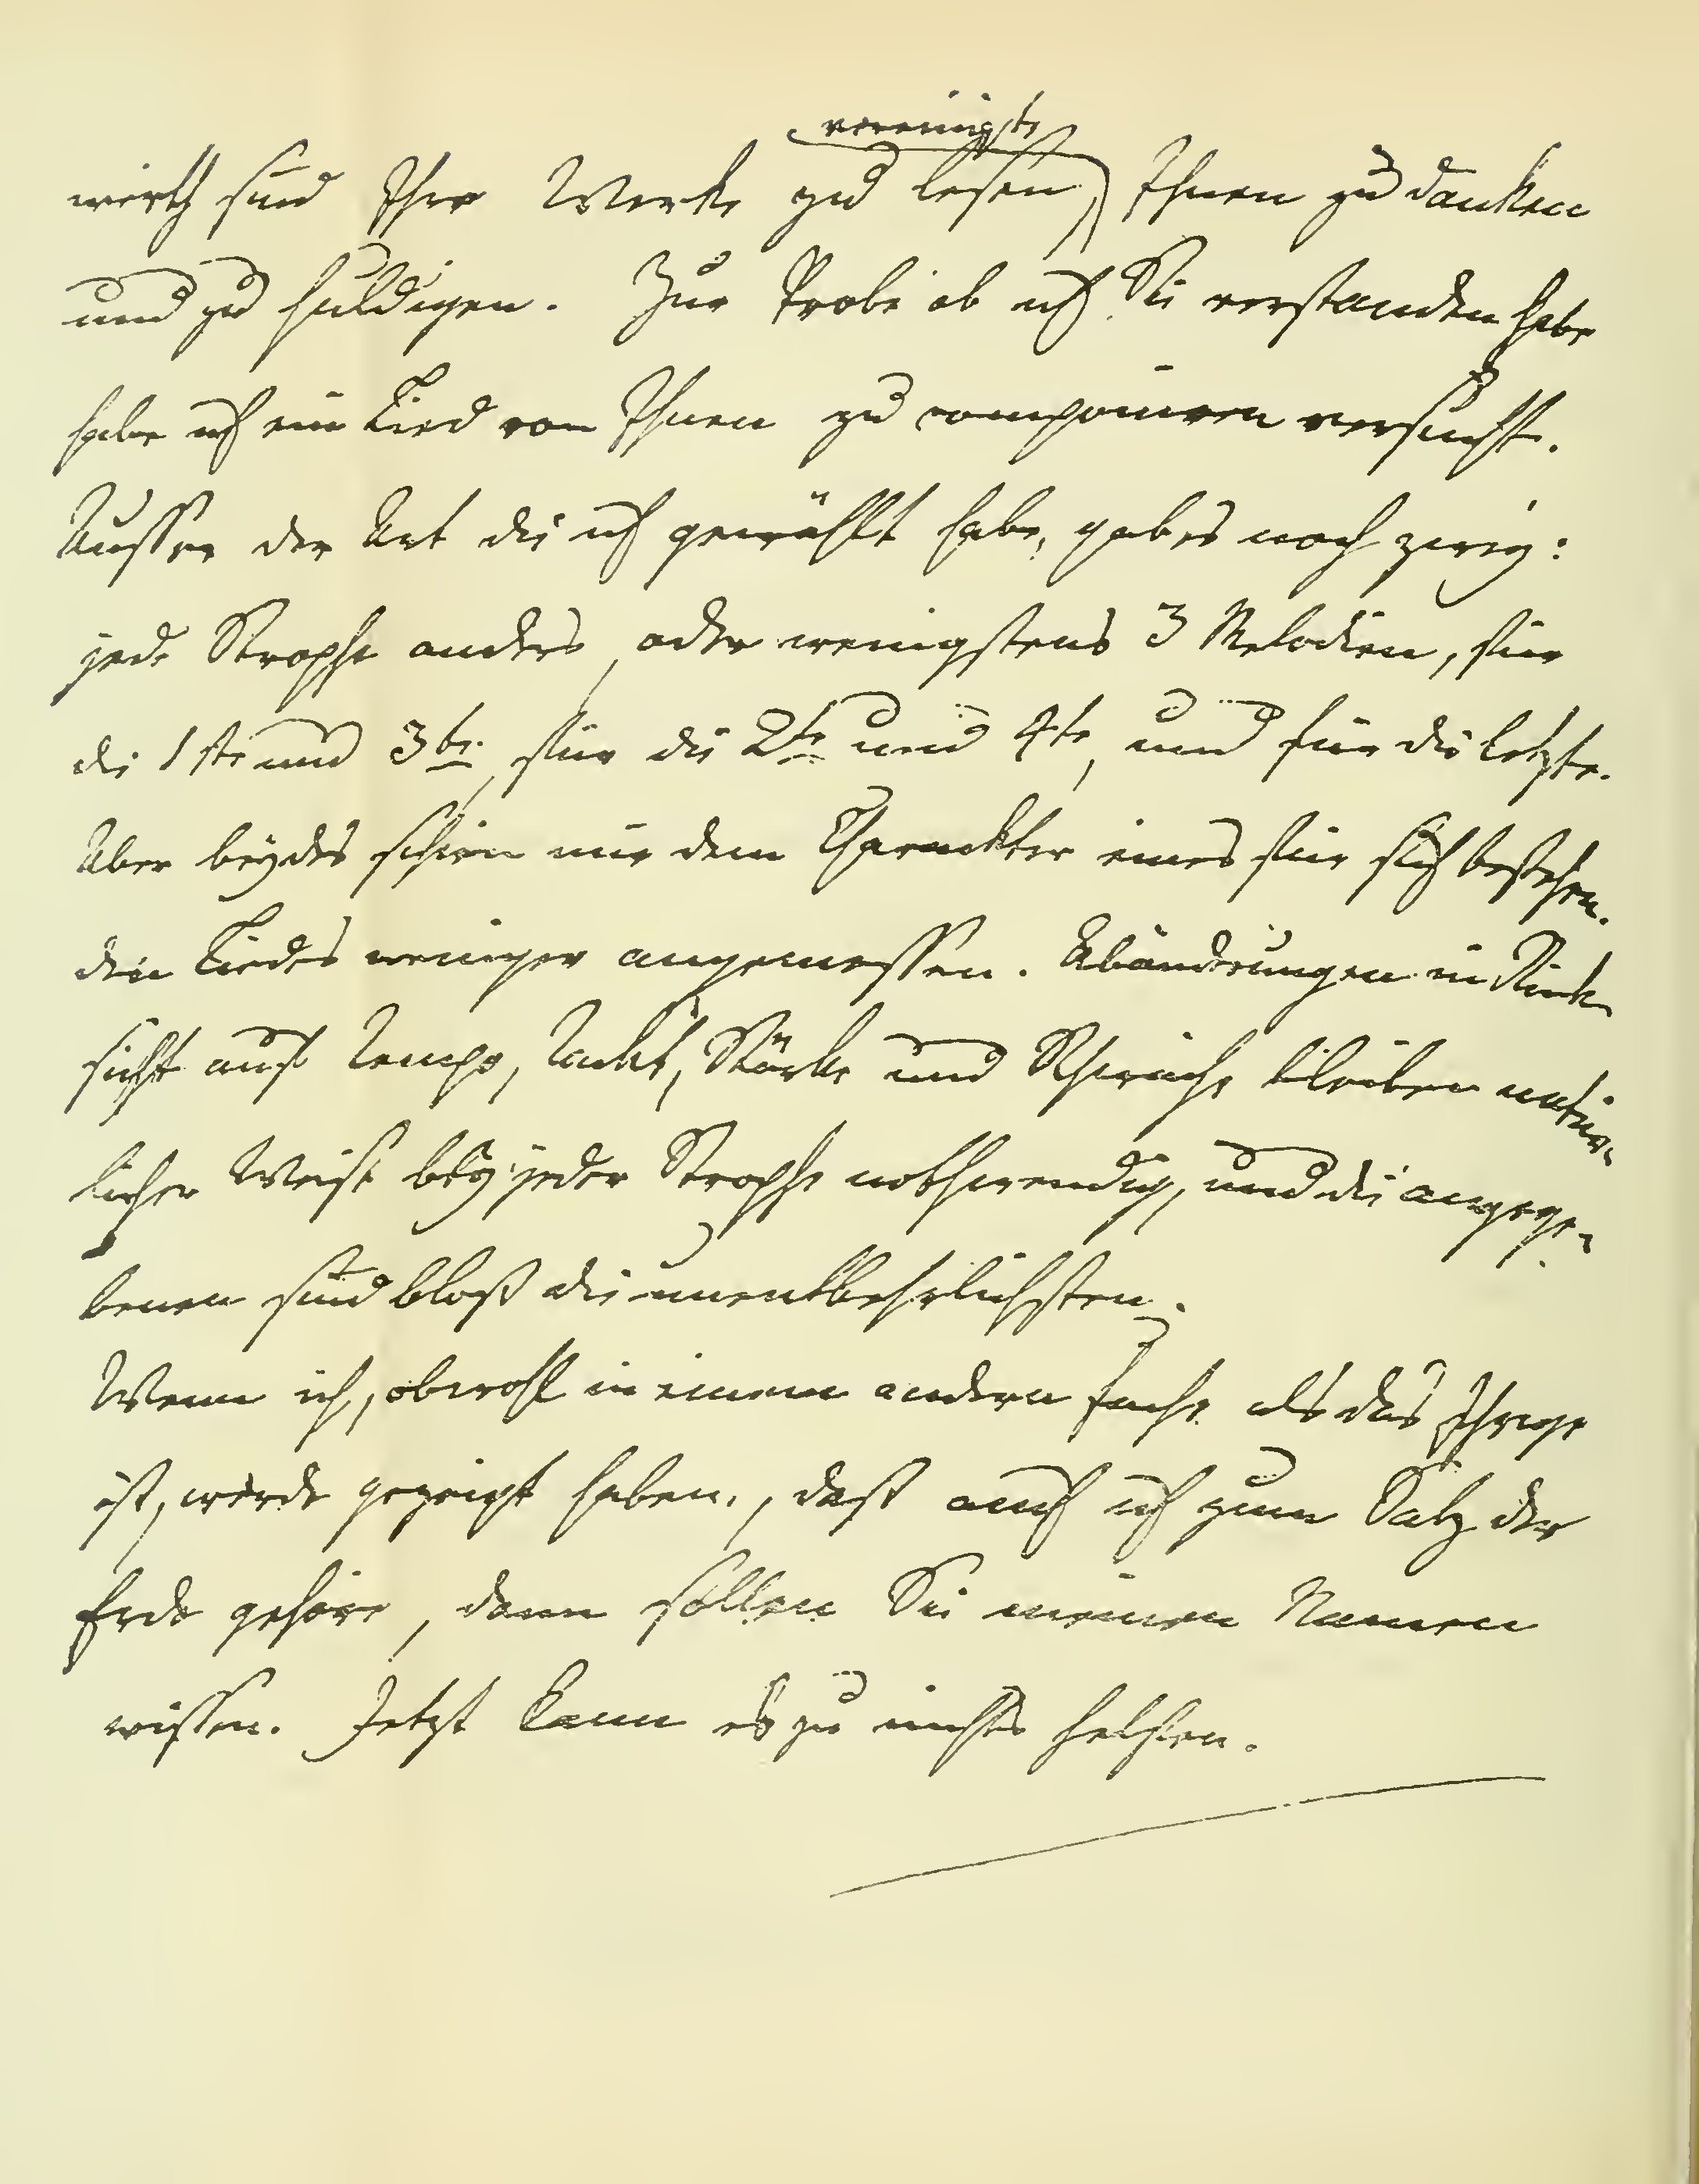 vereinigte
werth sind Ihre Werke zu lesen, Ihnen zu danken
und zu huldigen. Zur Probe ob ich Sie verstanden habe
habe ich ein Lied von Ihnen zu componiren versucht.
Ausser der Art die ich gewählt habe, gab es noch zwey:
jede Strophe anders, oder wenigstens 3 Melodien, für
die 1ste und 3te, für die 2te und 4te, und für die letzte.
Aber beydes schien mir dem Charackter eines für sich bestehen-
den Liedes weniger angemessen. Abänderungen in Rück-
sicht auf Tempo, Tackt, Stärke und Schwäche bleiben natür-
licher Weise bey jeder Strophe nothwendig, und die angege-
benen sind bloß die unentbehrlichsten.
Wenn ich, obwohl in einem andern Fache als das Ihrige
ist, werde gezeigt haben, daß auch ich zum Salz der
Erde gehöre, dann sollen Sie meinen Namen
wissen. Jetzt kann es zu nichts helfen.